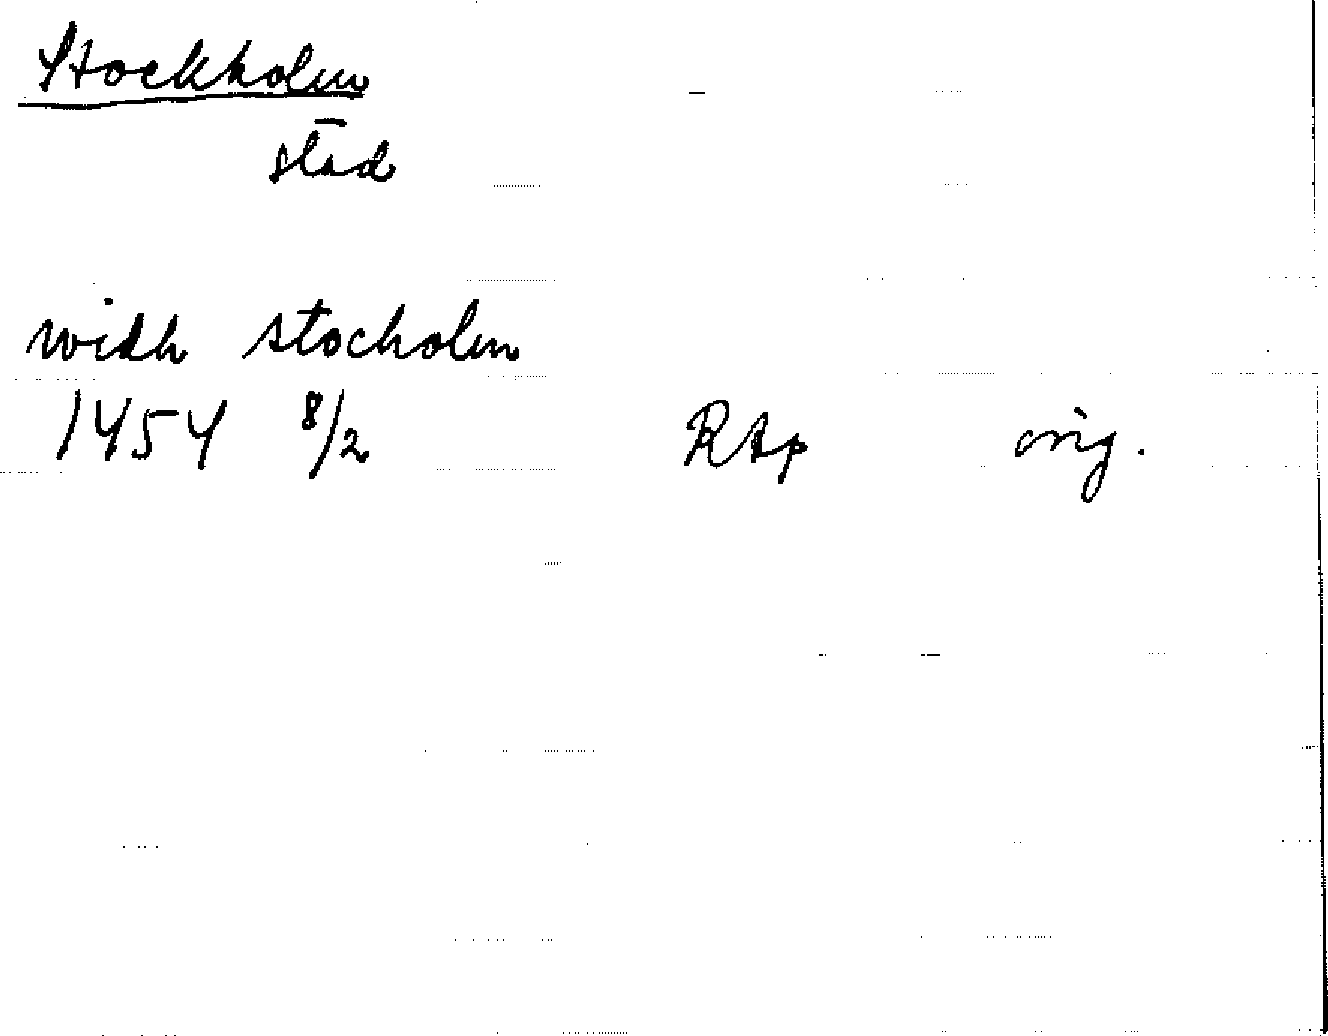 Stockholm
stad
widh stocholm
1454 8/2 RAp orig.